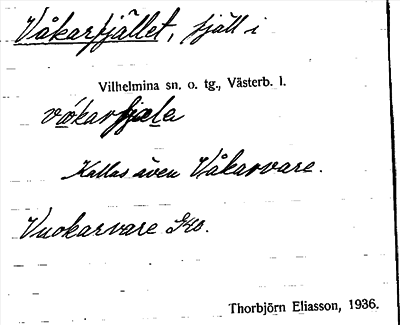 Våkarfjället, fjäll i
Vilhelmina sn. o. tg., Västerb. l.
våkarfjæla
Kallas även Våkarvare.
Vuokarvare
Thorbjörn Eliasson, 1936.